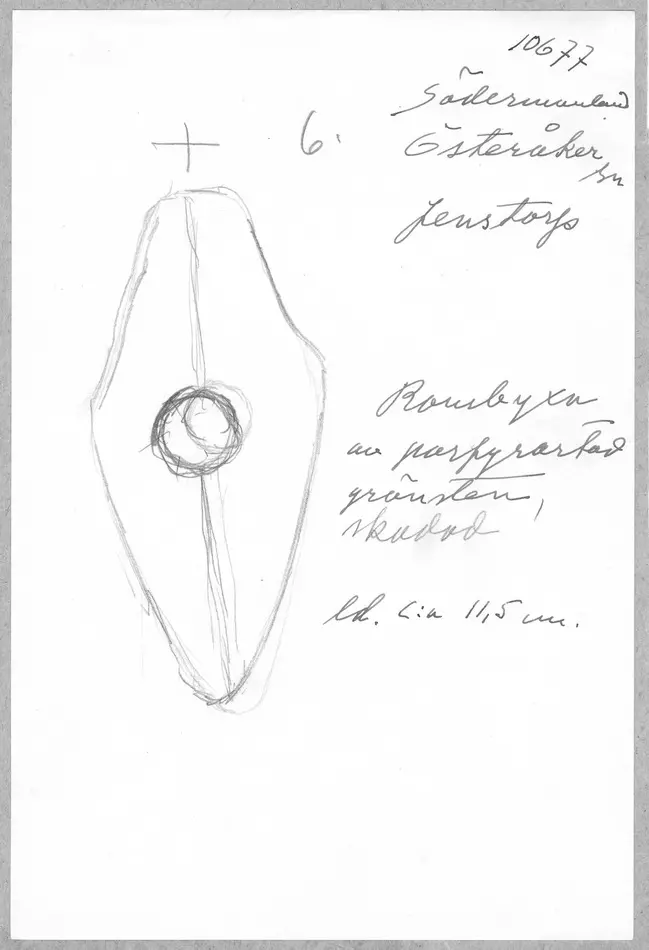 10677
Södermanland
Österåker
sn
Jenstorp
6.
Rombyxa
av porfyrartad
grönsten,
skadad
ld. c:a 11,5 cm.